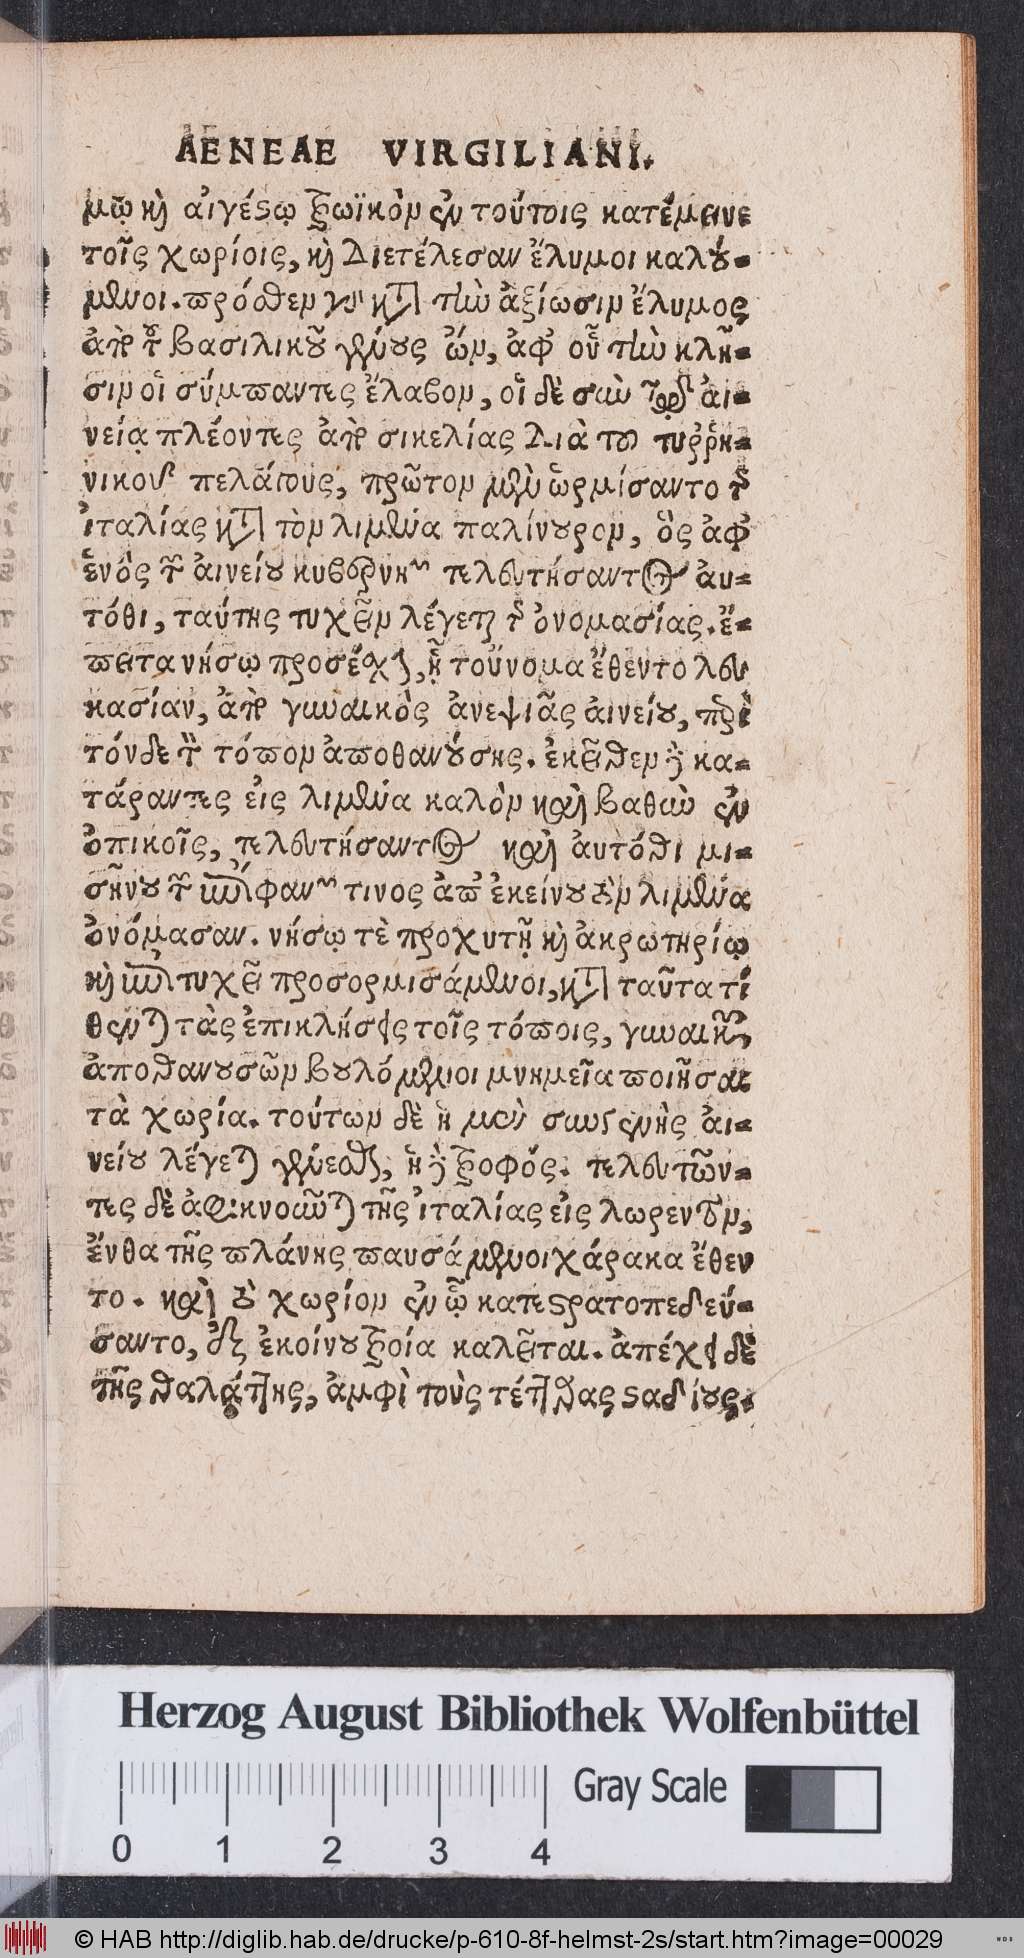 AENEAE VIRGILIANI.
μῳ καὶ αἰγέστῳ τρωϊκὸν ἐν τούτοις κατέμεινε
τοῖς χωρίοις, καὶ διετέλεσαν ἔλυμοι καλού-
μενοι. πρόσθεν γὰρ κατὰ τὴν ἀξίωσιν ἔλυμος
ἀπὸ τοῦ βασιλικοῦ γένους ὤν, ἀφ' οὗ τὴν κλῆ-
σιν οἱ σύμπαντες ἔλαβον, οἱ δὲ σὺν τῷ αἰ-
νείᾳ πλέοντες ἀπὸ σικελίας διὰ το τυῤῥη-
νικοῦ πελάγους, πρῶτον μὲν ὡρμίσαντο τῆς
ἰταλίας κατὰ τὸν λιμένα παλίνουρον, ὃς ἀφ'
ἑνὸς τῶν αἰνείου κυβερνητῶν τελευτήσαντος αὐ-
τόθι, ταύτης τυχεῖν λέγεται τῆς ὀνομασίας. ἔ-
πειτα νήσῳ προσέσχον, ᾗ τοὔνομα ἔθεντο λευ
κασίαν, ἀπὸ γυναικὸς ἀνεψιᾶς αἰνείου, περὶ
τόνδε τὸν τόπον ἀποθανούσης. ἐκεῖθεν δὲ κα-
τάραντες εἰς λιμένα καλὸν καὶ βαθὺν ἐν
ὀπικοῖς, τελευτήσαντος καὶ αὐτόθι μι-
σήνου τῶν ἐπιφανῶν τινος ἀπ' ἐκείνου τὸν λιμένα
ὀνόμασαν. νήσῳ τὲ προχυτῇ καὶ ἀκρωτηρίῳ
καὶ ἐπιτυχεῖ προσορμισάμενοι, κατὰ ταῦτα τί
θενται τὰς ἐπικλήσεις τοῖς τόποις, γυναικῶν
ἀποθανουσῶν βουλόμενοι μνημεῖα ποιῆσαι
τὰ χωρία. τούτων δὲ ἡ μὲν συγγενὴς αἰ-
νείου λέγεται γενέσθαι, ἡ δὲ τροφός. τελευτῶν-
τες δὲ ἀφικνοῦνται τῆς ἰταλίας εἰς λωρεντὸν,
ἔνθα τῆς πλάνης παυσάμενοι χάρακα ἔθεν
το. καὶ τὸ χωρίον ἐν ᾧ κατεστρατοπεδεύ-
σαντο, ἐξ ἐκείνου τροία καλεῖται. ἀπέχει δὲ
τῆς θαλάττης, ἀμφὶ τοὺς τέτταρας σταδίους.
Herzog August Bibliothek Wolfenbüttel
Gray Scale
0 1 2 3 4
© HAB http://diglib.hab.de/drucke/p-610-8f-helmst-2s/start.htm?image=00029